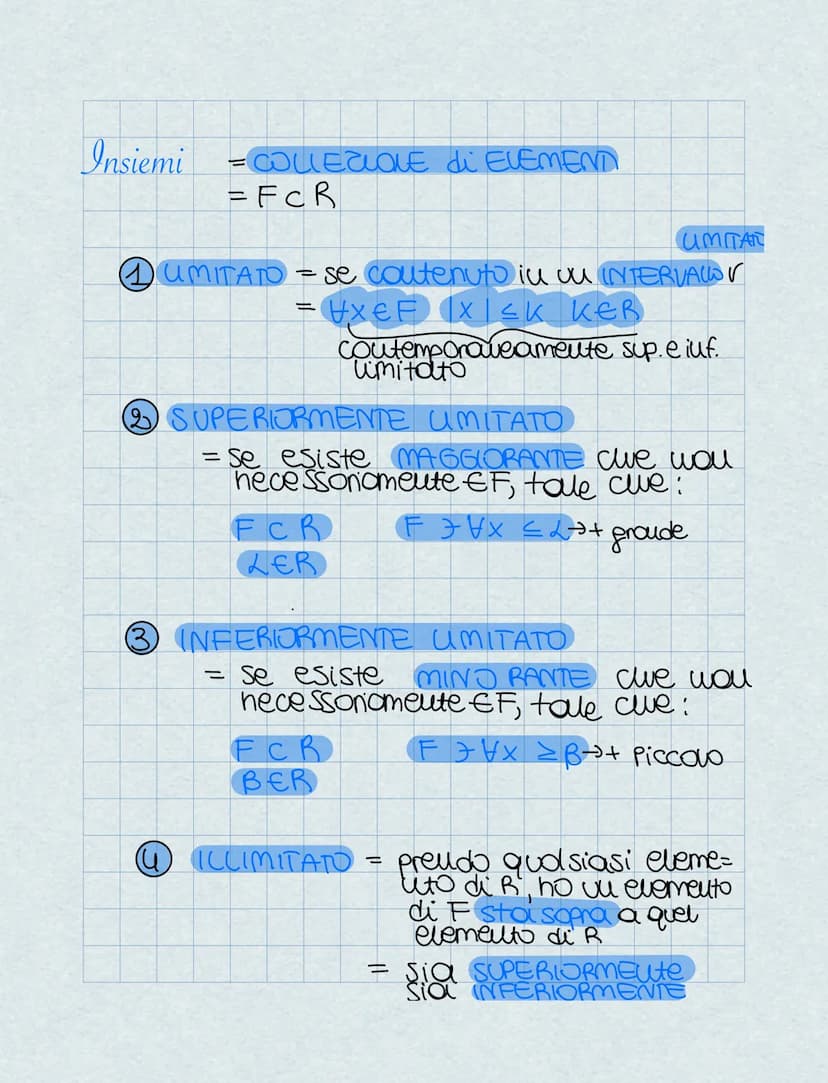 Insiemi = COLLEZIONE di ELEMENTI
= F ⊂ R
LIMITATO
① LIMITATO = se contenuto in un INTERVALLO
= ∀x∈F |x|≤K K∈R
contemporaneamente sup. e inf.
limitato
② SUPERIORMENTE LIMITATO
= se esiste MAGGIORANTE che non
necessariamente ∈F, tale che:
F ⊂ R F ∋ ∀x ≤ L → + grande
L∈R
③ INFERIORMENTE LIMITATO
= se esiste MINORANTE che non
necessariamente ∈F, tale che:
F ⊂ R F ∋ ∀x ≥ β → + piccolo
β∈R
④ ILLIMITATO = prendo qualsiasi eleme=
nto di R, ho un elemento
di F sta sopra a quel
elemento di R
= sia SUPERIORMENTE
sia INFERIORMENTE